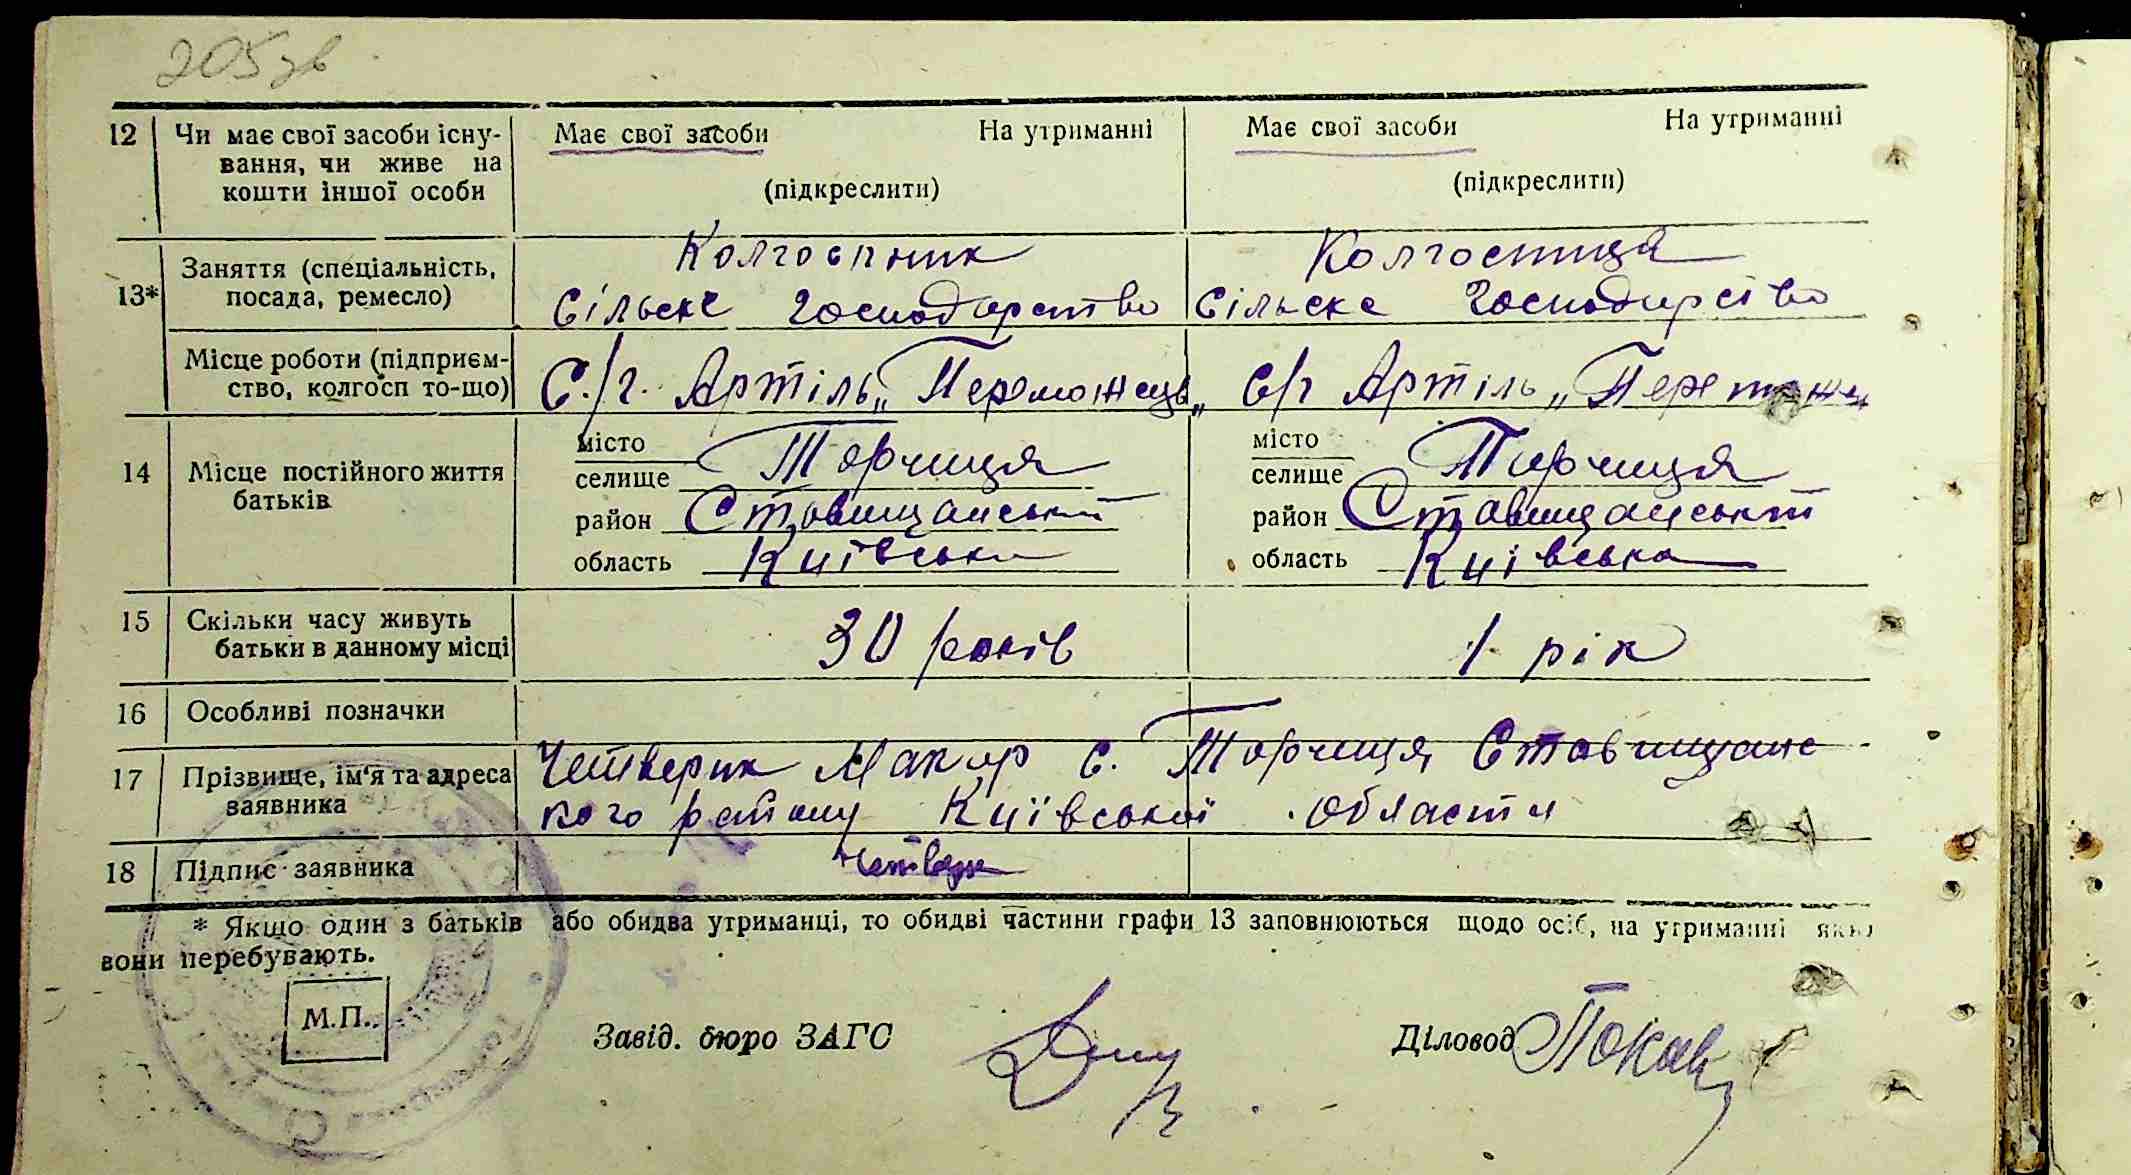 205 зв
12 Чи має свої засоби існу- Має свої засоби На утриманні Має свої засоби На утриманні
вання, чи живе на
кошти іншої особи (підкреслити) (підкреслити)
13* Заняття (спеціальність, Колгоспник Колгоспиця
посада, ремесло) Сільске Господарство Сільске Господарство
Місце роботи (підприєм-
ство, колгосп то-що) С./г. Артіль „Переможець„ С/г Артіль „Переможец
14 Місце постійного життя місто місто
батьків селище Торчиця селище Торчиця
район Ставищанський район Ставищанський
область Київська область Київська
15 Скільки часу живуть 30 років 1 рік
батьки в данному місці
16 Особливі позначки
17 Прізвище, ім'я та адреса Четверик Макар с. Торчиця Ставищанс
заявника кого району Київської области
18 Підпис заявника Четверик
* Якщо один з батьків або обидва утриманці, то обидві частини графи 13 заповнюються щодо осіб, на утриманні яких
вони перебувають.
М.П.
Завід. бюро ЗАГС Діловод